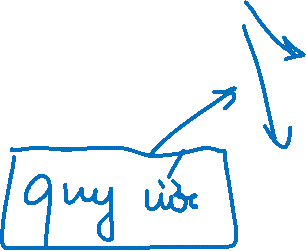 quy ước